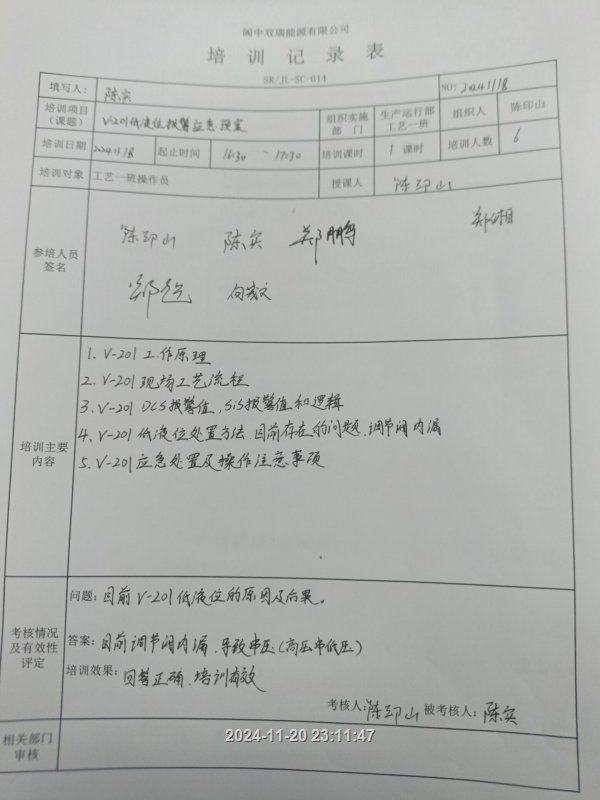 阆中双瑞能源有限公司
培训记录表
SR/JL-SC-014
填写人: 陈实 NO: 20241118
培训项目(课题) V-201低液位报警应急预案 组织实施部门 生产运行部工艺一班 组织人 陈印山
培训日期 2024.11.18 起止时间 16:30 - 17:30 培训课时 1课时 培训人数 6
培训对象 工艺一班操作员 授课人 陈印山
参培人员签名
陈印山 陈实 郑鹏 郑湘
郑
培训主要内容
1. V-201工作原理
2. V-201现场工艺流程
3. V-201 DCS报警值,SIS报警值和逻辑
4. V-201低液位处置方法,目前存在的问题,调节阀内漏
5. V-201应急处置及操作注意事项
考核情况及有效性评定
问题: 目前V-201低液位的原因及后果。
答案: 目前调节阀内漏,导致串压(高压串低压)
培训效果: 回答正确,培训有效
考核人: 陈印山 被考核人: 陈实
相关部门审核
2024-11-20 23:11:47